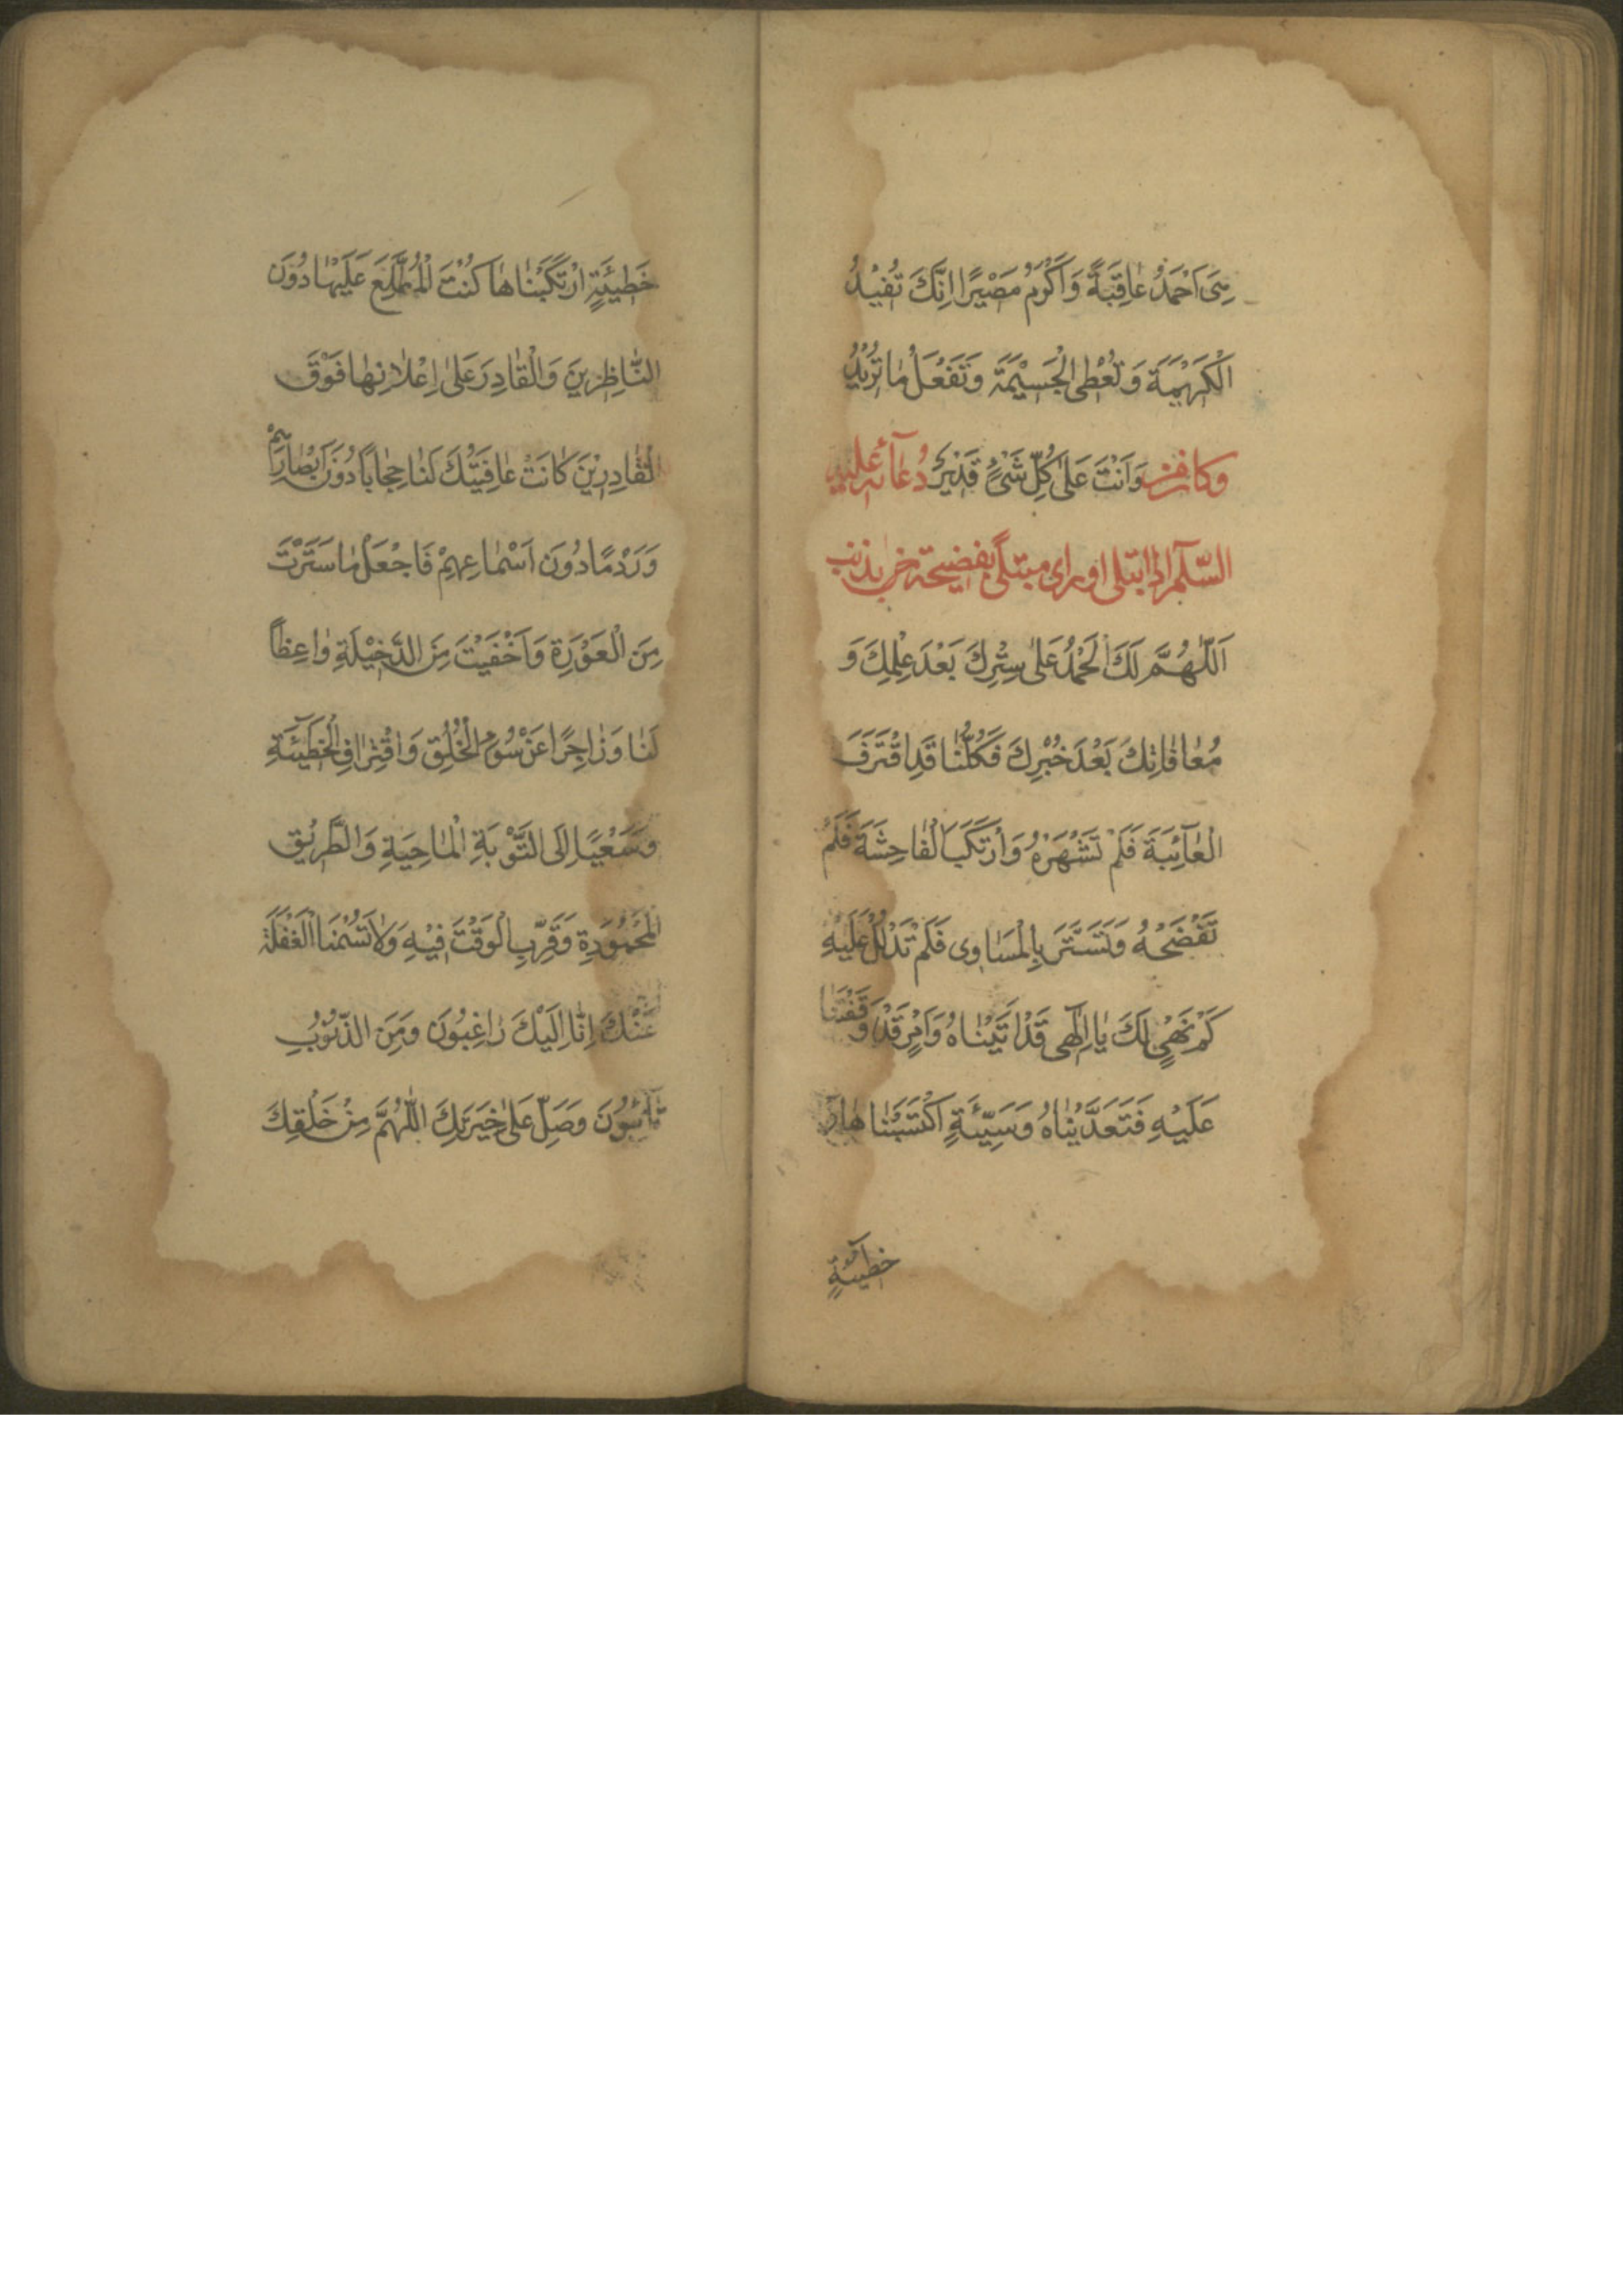 هِىَ اَحْمَدُ عٰاقِبَةً وَاَكْرَمُ مَصْيرًا اِنَّكَ تُفيْدُ
الْكَرٖيْمَةَ وَتُعْطِى الْجَسيْمَةَ وَتَفْعَلُ مٰا تُرٖيْدُ
وَاَنْتَ عَلىٰ كُلِّ شَىْءٍ قَدٖيْرٌ وكان من دُعآئه عليه
السّلٓم اذا ابتلى او راى مبتلًى بفضيحة بذنب
اَللّٰهُمَّ لَكَ الْحَمْدُ عَلىٰ سِتْرِكَ بَعْدَ عِلْمِكَ وَ
مُعٰافٰاتِكَ بَعْدَ خُبْرِكَ فَكُلُّنٰا قَدِ اقْتَرَفَ
الْعٰآئِبَةَ فَلَمْ تَشْهَرْهُ وَارْتَكَبَ الْفٰاحِشَةَ فَلَمْ
تَفْضَحْهُ وَتَسَتَّرَ بِالْمَسٰاوِى فَلَمْ تَدْلُلْ عَلَيْهِ
كَمْ نَهْىٍ لَكَ يٰا اِلٰهٓى قَدْ اَتَيْنٰاهُ وَاَمْرٍ قَدْ وَقَفْتَنٰا
عَلَيْهِ فَتَعَدَّيْنٰاهُ وَسَيِّئَةٍ اكْتَسَبْنٰاهٰا وَ
خطيٓئةٍ
خَطٖيْئَةٍ ارْتَكَبْنٰاهٰا كُنْتَ الْمُطَّلِعَ عَلَيْهٰا دُوْنَ
النّٰاظِرٖينَ وَالْقٰادِرَ عَلىٰ اِعْلٰانِهٰا فَوْقَ
الْقٰادِرٖيْنَ كٰانَتْ عٰافِيَتُكَ لَنٰا حِجٰابًا دُوْنَ اَبْصٰارِهِمْ
وَرَدْمًا دُوْنَ اَسْمٰاعِهِمْ فَاجْعَلْ مٰا سَتَرْتَ
مِنَ الْعَوْرَةِ وَاَخْفَيْتَ مِنَ الدَّخٖيْلَةِ وٰاعِظًا
لَنٰا وَزٰاجِرًا عَنْ سُوْءِ الْخُلُقِ وَاقْتِرٰافِ الْخَطٖيٓئَةِ
وَسَعْيًا اِلَى التَّوْبَةِ الْمٰاحِيَةِ وَالطَّرٖيْقِ
الْمَحْمُوْدَةِ وَقَرِّبِ الْوَقْتَ فٖيْهِ وَلٰا تَسُمْنَا الْغَفْلَةَ
عَنْكَ اِنّٰا اِلَيْكَ رٰاغِبُوْنَ وَمِنَ الذُّنُوْبِ
تٰآئِبُوْنَ وَصَلِّ عَلىٰ خِيَرَتِكَ اللّٰهُمَّ مِنْ خَلْقِكَ